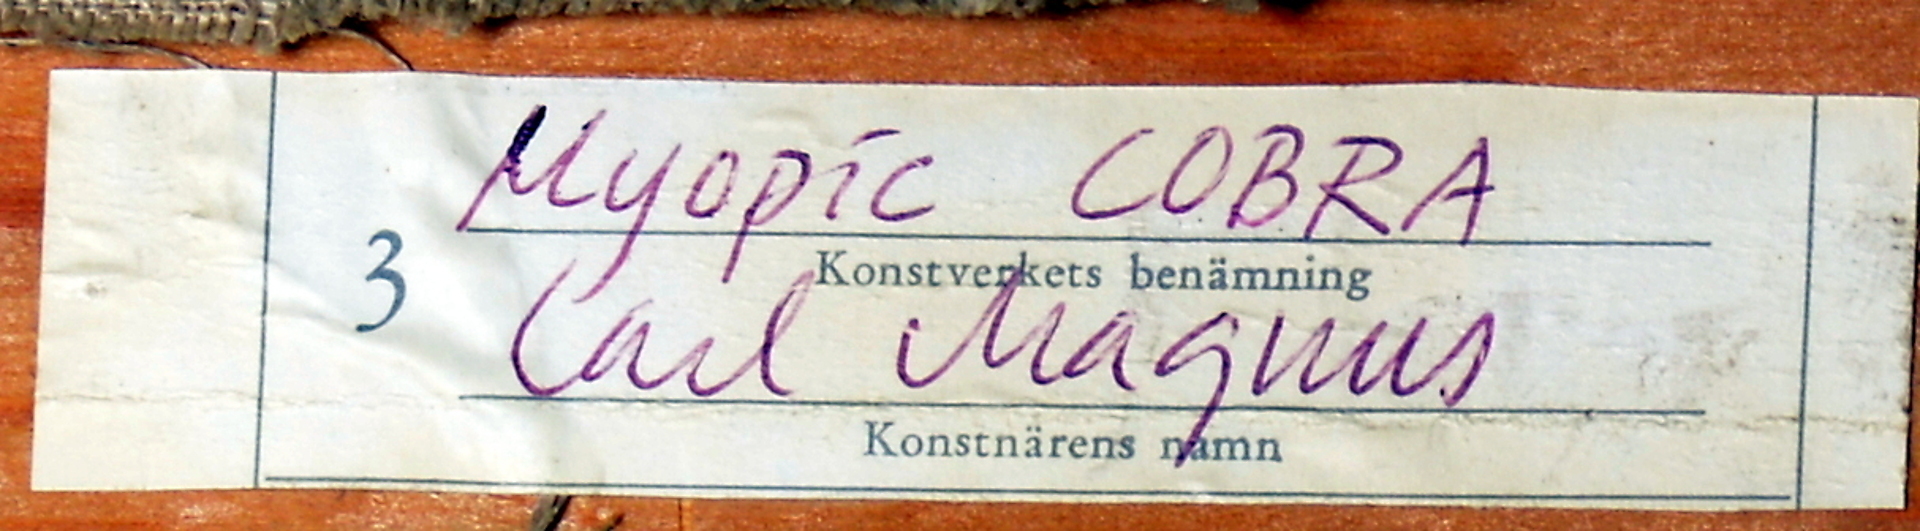 Myopic COBRA
3
Konstverkets benämning
Carl Magnus
Konstnärens namn